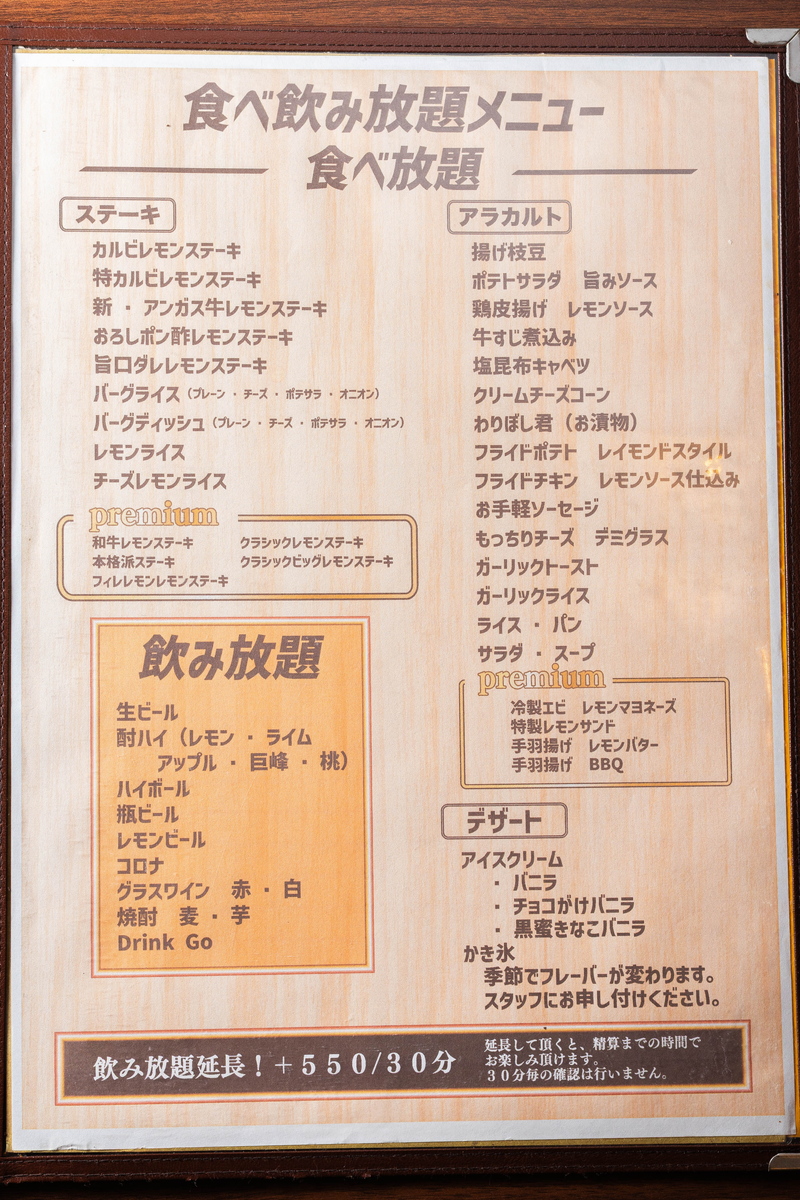 食べ飲み放題メニュー
食べ放題
ステーキ
カルビレモンステーキ
特カルビレモンステーキ
新・アンガス牛レモンステーキ
おろしポン酢レモンステーキ
旨口ダレレモンステーキ
バーグライス（プレーン・チーズ・ポテサラ・オニオン）
バーグディッシュ（プレーン・チーズ・ポテサラ・オニオン）
レモンライス
チーズレモンライス
premium
和牛レモンステーキ
本格派ステーキ
フィレレモンレモンステーキ
クラシックレモンステーキ
クラシックビッグレモンステーキ
飲み放題
生ビール
酎ハイ（レモン・ライム
アップル・巨峰・桃）
ハイボール
瓶ビール
レモンビール
コロナ
グラスワイン　赤・白
焼酎　麦・芋
Drink Go
アラカルト
揚げ枝豆
ポテトサラダ　旨みソース
鶏皮揚げ　レモンソース
牛すじ煮込み
塩昆布キャベツ
クリームチーズコーン
わりぼし君（お漬物）
フライドポテト　レイモンドスタイル
フライドチキン　レモンソース仕込み
お手軽ソーセージ
もっちりチーズ　デミグラス
ガーリックトースト
ガーリックライス
ライス・パン
サラダ・スープ
premium
冷製エビ　レモンマヨネーズ
特製レモンサンド
手羽揚げ　レモンバター
手羽揚げ　BBQ
デザート
アイスクリーム
・バニラ
・チョコがけバニラ
・黒蜜きなこバニラ
かき氷
季節でフレーバーが変わります。
スタッフにお申し付けください。
飲み放題延長！＋５５０/３０分
延長して頂くと、精算までの時間で
お楽しみ頂けます。
３０分毎の確認は行いません。